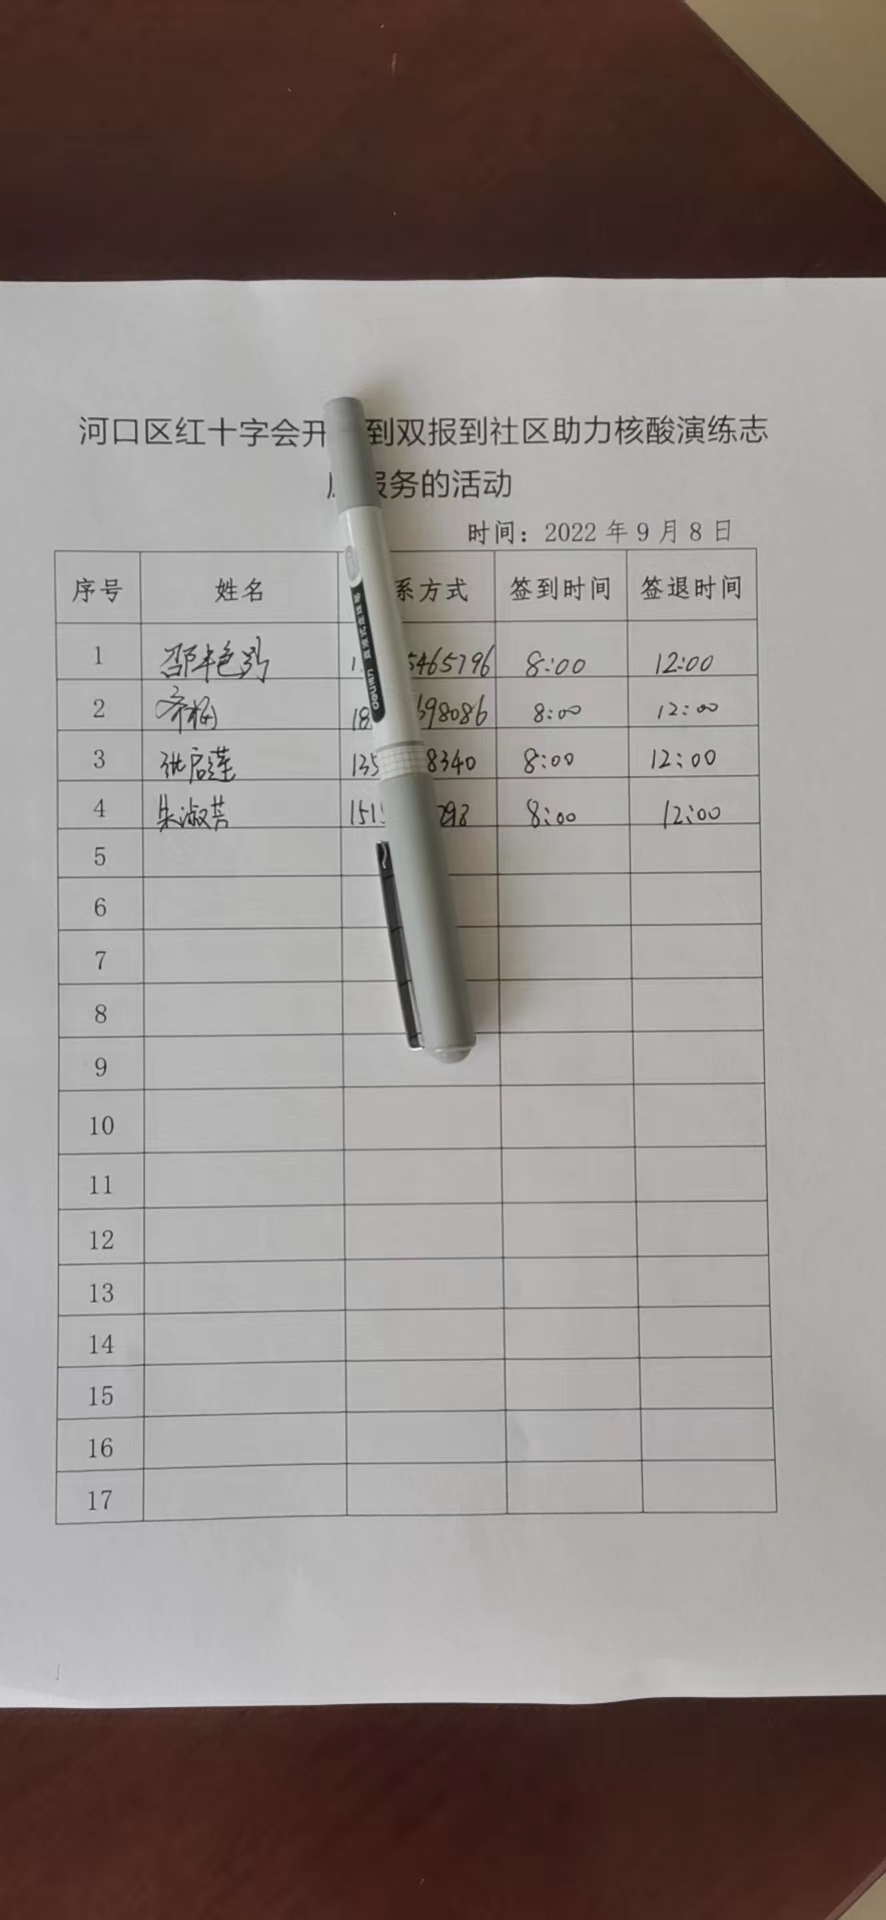 河口区红十字会开 到双报到社区助力核酸演练志
服务的活动
时间：2022年9月8日
序号 姓名 系方式 签到时间 签退时间
1 邵 5465796 8:00 12:00
2 齐梅 18 398086 8:00 12:00
3 张启莲 135 8340 8:00 12:00
4 朱淑芳 151 293 8:00 12:00
5
6
7
8
9
10
11
12
13
14
15
16
17
deli